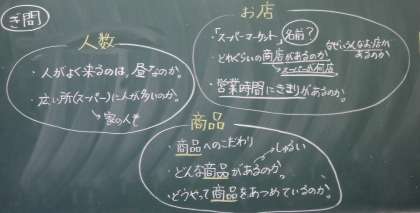 ぎ問
人数
・人がよく来るのは、昼なのか。
・広い所(スーパー)に人が多いのか。
→家の人も
お店
・「スーパーマーケット」名前?
・どれくらいの商店があるのか。
→スーパーや何店
なぜいろんなお店があるのか
・営業時間にきまりがあるのか。
商品
・商品へのこだわり
・どんな商品があるのか。
→しゅるい
・どうやって商品をあつめているのか。